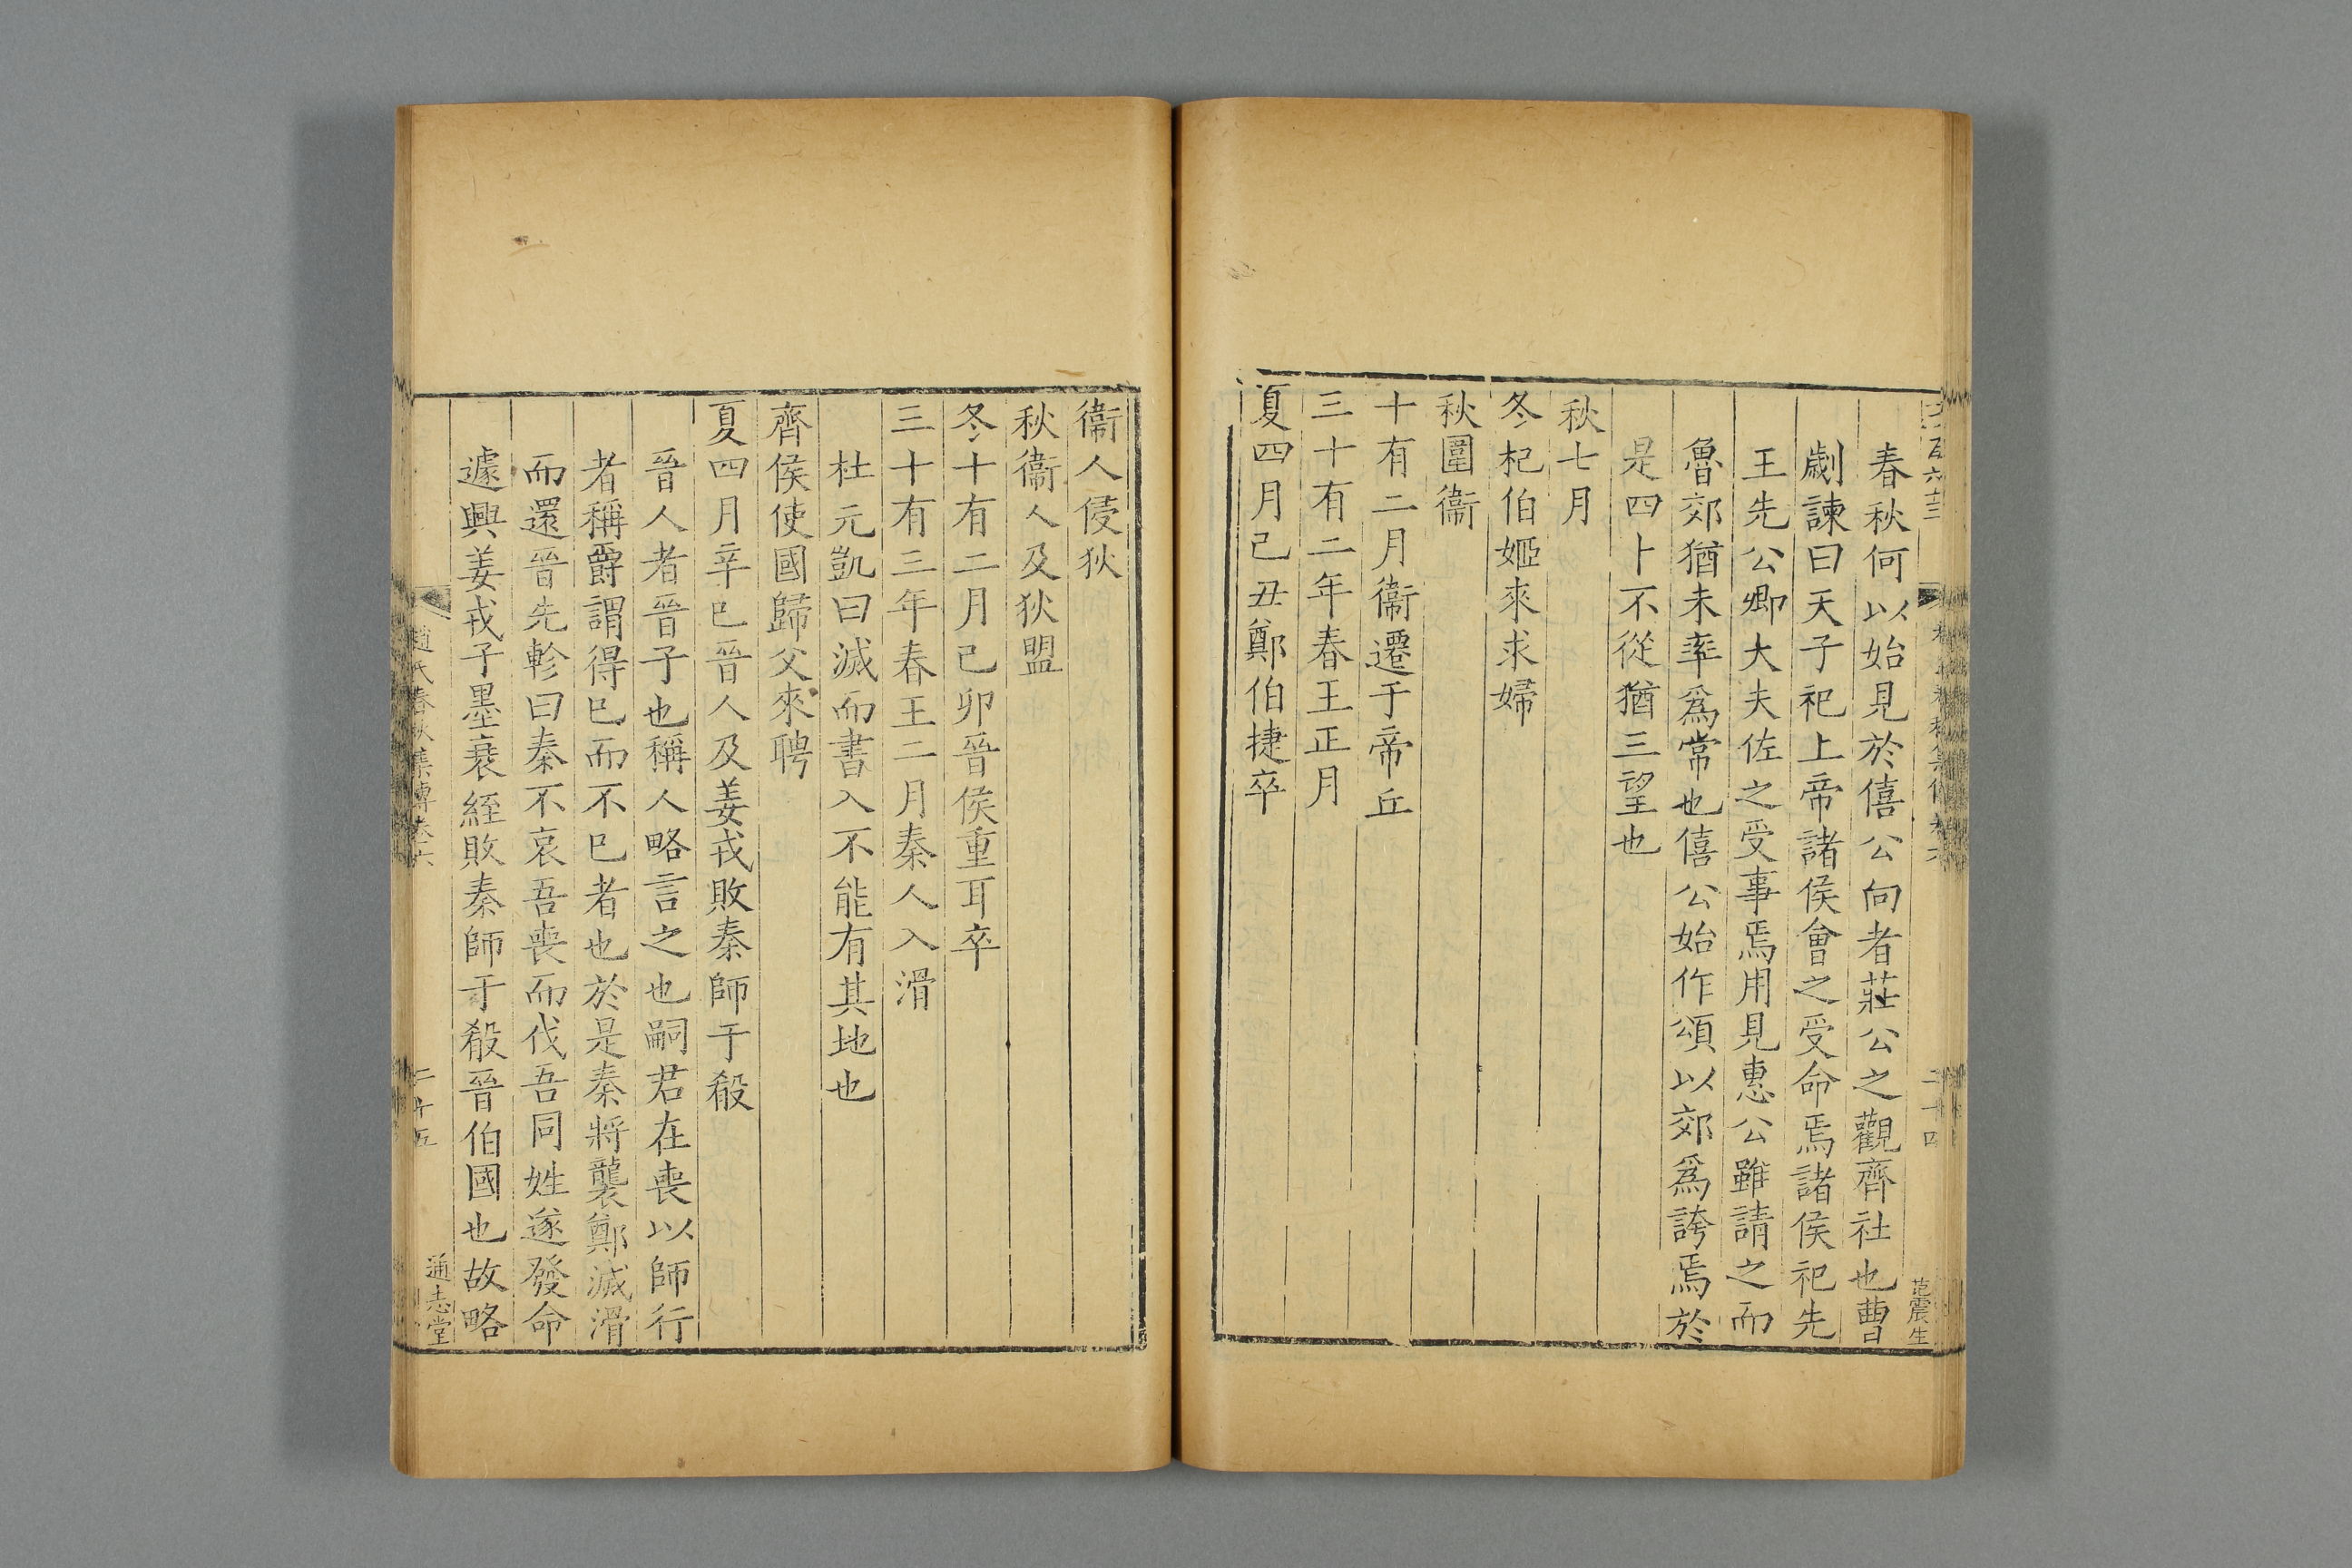 春秋何以始見於僖公向者莊公之觀齊社也曹
劌諫曰天子祀上帝諸侯會之受命焉諸侯祀先
王先公卿大夫佐之受事焉用見惠公雖請之而
魯郊猶未率爲常也僖公始作頌以郊爲誇焉於
是四卜不從猶三望也
秋七月
冬杞伯姬來求婦
秋圍衞
十有二月衞遷于帝丘
三十有二年春王正月
夏四月己丑鄭伯捷卒
范震生
二十四
衞人侵狄
秋衞人及狄盟
冬十有二月己卯晉侯重耳卒
三十有三年春王二月秦人入滑
杜元凱曰滅而書入不能有其地也
齊侯使國歸父來聘
夏四月辛巳晉人及姜戎敗秦師于殽
晉人者晉子也稱人略言之也嗣君在喪以師行
者稱爵謂得已而不已者也於是秦將襲鄭滅滑
而還晉先軫曰秦不哀吾喪而伐吾同姓遂發命
遽興姜戎子墨衰絰敗秦師于殽晉伯國也故略
趙氏春秋集傳卷六
二十五
通志堂